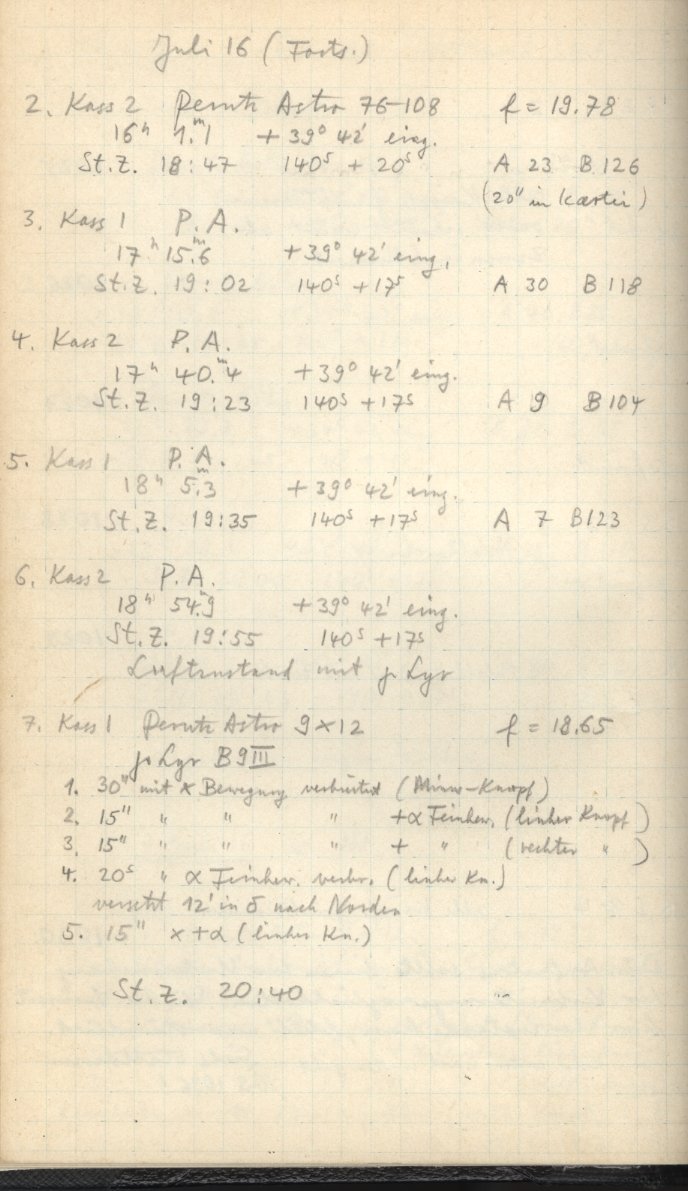 Juli 16 (Forts.)
2. Kass 2 Perutz Astro 76-108 f = 19.78
16ʰ 1.ᵐ1 + 39° 42' eing.
St.Z. 18:47 140ˢ + 20ˢ A 23 B 126
(20" in Kartei)
3. Kass 1 P.A.
17ʰ 15.ᵐ6 +39° 42' eing.
St.Z. 19:02 140ˢ +17ˢ A 30 B 118
4. Kass 2 P.A.
17ʰ 40.ᵐ4 +39° 42' eing.
St.Z. 19:23 140ˢ +17ˢ A 9 B 104
5. Kass 1 P.A.
18ʰ 5.ᵐ3 +39° 42' eing.
St.Z. 19:35 140ˢ +17ˢ A 7 B 123
6. Kass 2 P.A.
18ʰ 54.ᵐ9 +39° 42' eing.
St.Z. 19:55 140ˢ +17ˢ
Luftzustand mit γ Lyr
7. Kass 1 Perutz Astro 9×12 f = 18.65
γ Lyr B9III
1. 30" mit x Bewegung verbreitert (Knopf)
2. 15" " " " +α Feinbew. (linker Knopf)
3. 15" " " " + " (rechter " )
4. 20ˢ " α Feinbew. verbr. (linker Kn.)
versetzt 12' in δ nach Norden
5. 15" x +α (linker Kn.)
St.Z. 20:40